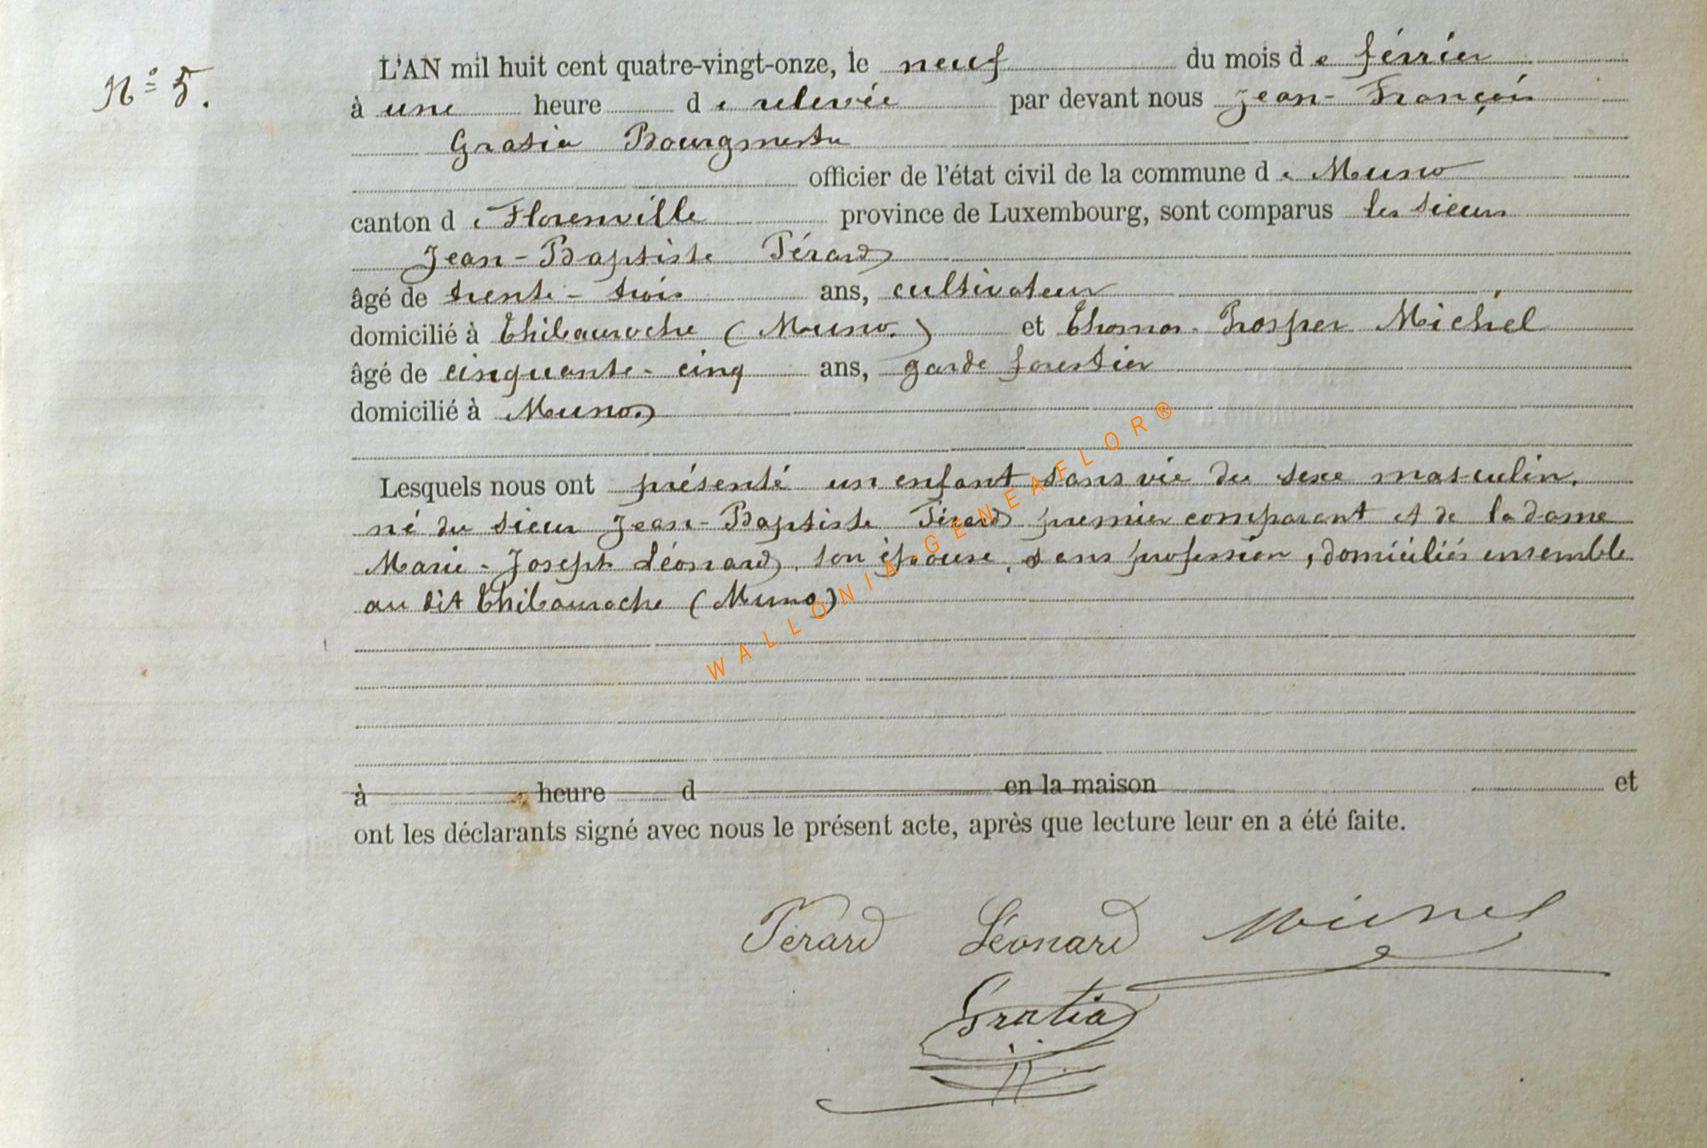 N° 5.
L'AN mil huit cent quatre-vingt-onze, le neuf du mois de février
à une heure de relevée par devant nous Jean-François
Gratia Bourgmestre
officier de l'état civil de la commune de Muno
canton de Florenville province de Luxembourg, sont comparus les sieurs
Jean-Baptiste Pérard
âgé de trente-trois ans, cultivateur
domicilié à Thibauroche (Muno.) et Thomas Prosper Michel
âgé de cinquante-cinq ans, garde forestier
domicilié à Muno
Lesquels nous ont présenté un enfant sans vie du sexe masculin,
né du sieur Jean-Baptiste Pérard premier comparant et de la dame
Marie-Joseph Léonard, son épouse, sans profession, domiciliés ensemble
au dit Thibauroche (Muno)
WALLONIA-GENEAFLOR®
à heure d en la maison et
ont les déclarants signé avec nous le présent acte, après que lecture leur en a été faite.
Pérard Léonard Michel
Gratia